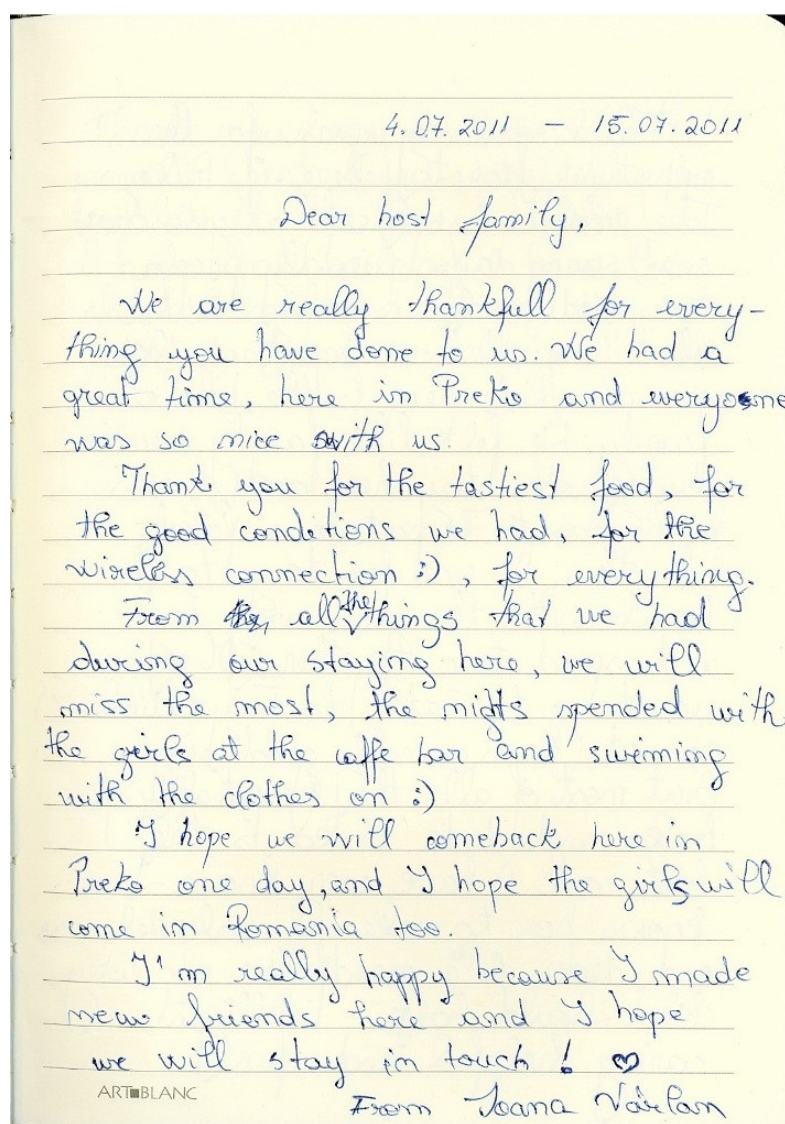 4.07.2011 – 15.07.2011
Dear host family,
We are really thankfull for every-
thing you have done to us. We had a
great time, here in Preko and everyone
was so nice with us.
Thank you for the tastiest food, for
the good conditions we had, for the
wireless connection :), for everything.
From all the things that we had
during our staying here, we will
miss the most, the nights spended with
the girls at the caffe bar and swimming
with the clothes on :)
I hope we will comeback here in
Preko one day, and I hope the girls will
come in Romania too.
I'm really happy because I made
new friends here and I hope
we will stay in touch! ♡
ART■BLANC
From Ioana Vârlan